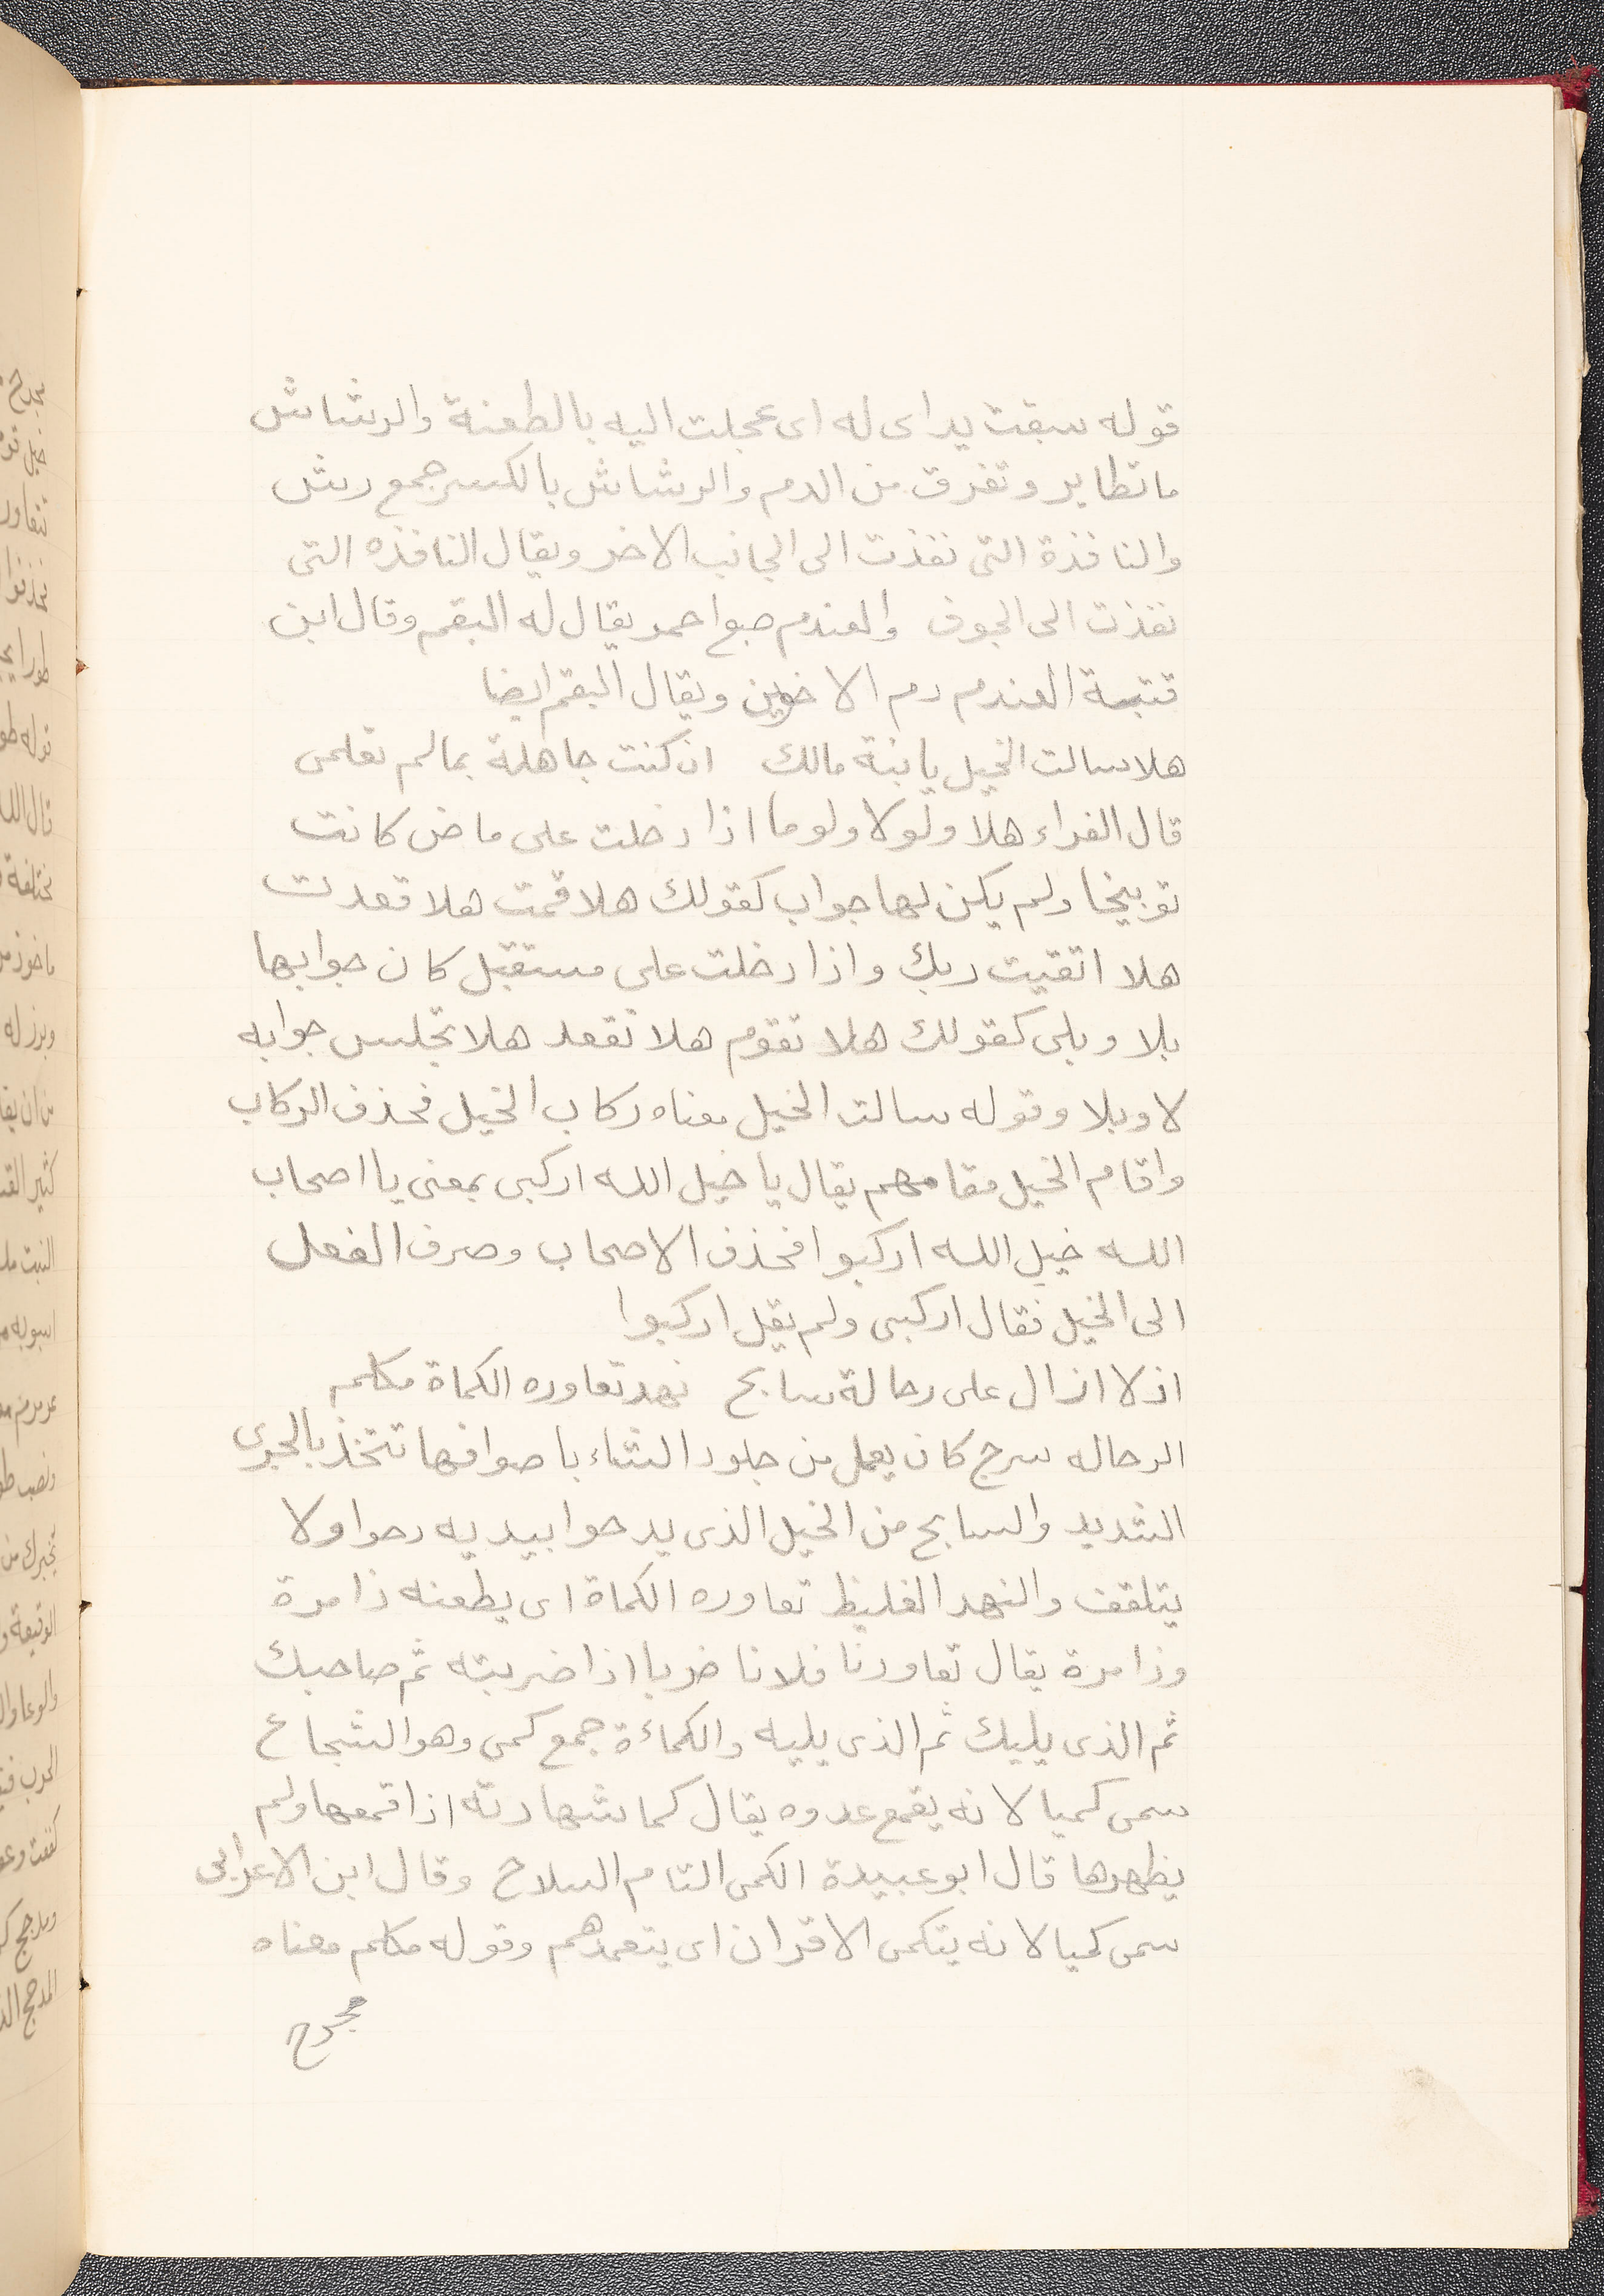 قوله سبقت يداى له اى عجلت اليه بالطعنة والرشاش
ما تطاير وتفرق من الدم والرشاش بالكسر جمع رش
والنافذة التى نفذت الى الجانب الاخر ويقال النافذه التى
نفذت الى الجوف والعندم صبغ احمر يقال له البقم وقال ابن
قتيبة العندم دم الاخوين ويقال البقم ايضا
هلا سالت الخيل يا بنة مالك ان كنت جاهلة بما لم تعلمى
قال الفراء هلا ولولا ولوما اذا دخلت على ماض كانت
توبيخا ولم يكن لها جواب كقولك هلا قمت هلا قعدت
هلا اتقيت ربك واذا دخلت على مستقبل كان جوابها
بلا وبلى كقولك هلا تقوم هلا تقعد هلا تجلس جوابه
لا وبلا وقوله سالت الخيل معناه ركاب الخيل فحذف الركاب
واقام الخيل مقامهم يقال يا خيل الله اركبى بمعنى يا اصحاب
الله خيل الله اركبوا فحذف الاصحاب وصرف الفعل
الى الخيل فقال اركبى ولم يقل اركبوا
اذ لا ازال على رحالة سابح نهد تعاوره الكماة مكلم
الرحاله سرج كان يعمل من جلود الشاء باصوافها تتخذ بالجرى
الشديد والسابح من الخيل الذى يدحوا بيديه دحوا ولا
يتلقف والنهد الغليظ تعاوره الكماة اى يطعنه ذا مرة
وذا مرة يقال تعاورنا فلانا ضربا اذا ضربته ثم صاحبك
ثم الذى يليك ثم الذى يليه والكماءة جمع كمى وهو الشجاع
سمى كميا لانه يقمع عدوه يقال كما شهادته اذا قمعها ولم
يظهرها قال ابو عبيدة الكمى التام السلاح وقال ابن الاعرابى
سمى كميا لانه يتكمى الاقران اى يتعمدهم وقوله مكلم معناه
مجرح